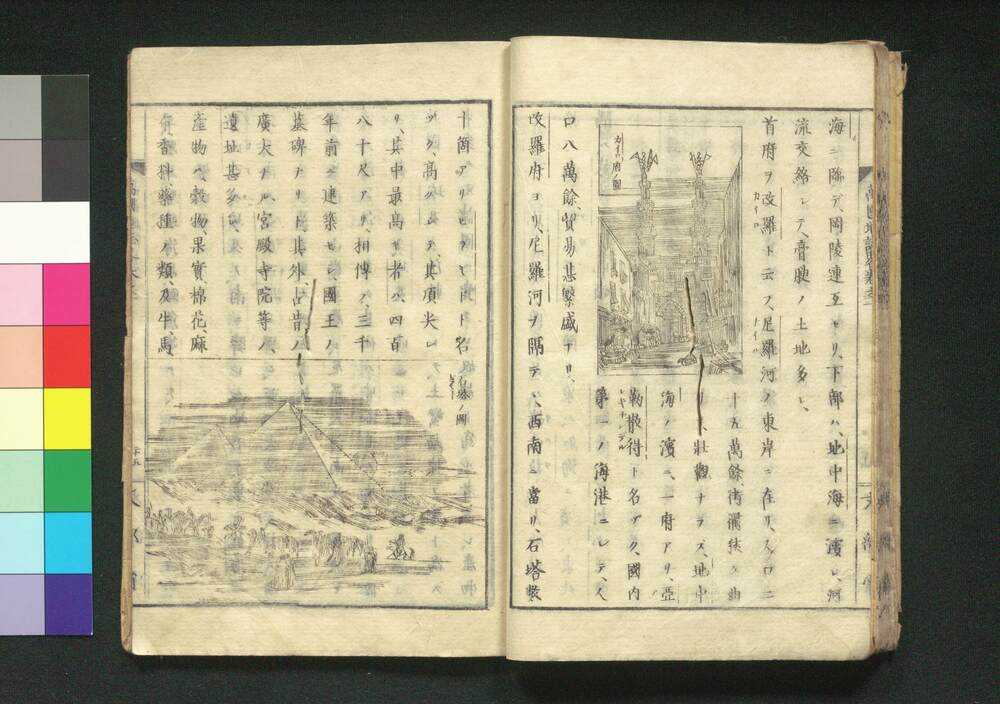 海ニ臨テ岡陵連亙セリ、下部ハ、地中海ニ濱シ、河
流交絡シテ、膏腴ノ土地多シ、
首府ヲ改羅ト云フ、尼羅河ノ東岸ニ在リ、人口二
カイロ
ナイル
カイロ府ノ圖
十五萬餘、街衢狹ク曲
リ、壯觀ナラズ、地中
海ノ濱ニ、一府アリ、亞
勒散得ト名ヅク、國内
レキサンデル
第一ノ海港ニシテ、人
口八萬餘、貿易甚繁盛ナリ、
改羅府ヨリ、尼羅河ヲ隔テヽ、西南ニ當リ、石塔數
十箇アリ、ピラミードト名
ヅク、高クシテ、其頂尖レ
リ、其中最高キ者ハ、四百
八十尺アリ、相傳フ、三千
年前ニ建築セシ國王ノ
墓碑ナリト、其外、古昔ノ
廣大ナル、宮殿寺院等ノ
遺址甚多シ、
産物ハ、穀物、果實、棉花、麻
香料、藥種ノ類、及牛、馬
石塔ノ圖
文部省